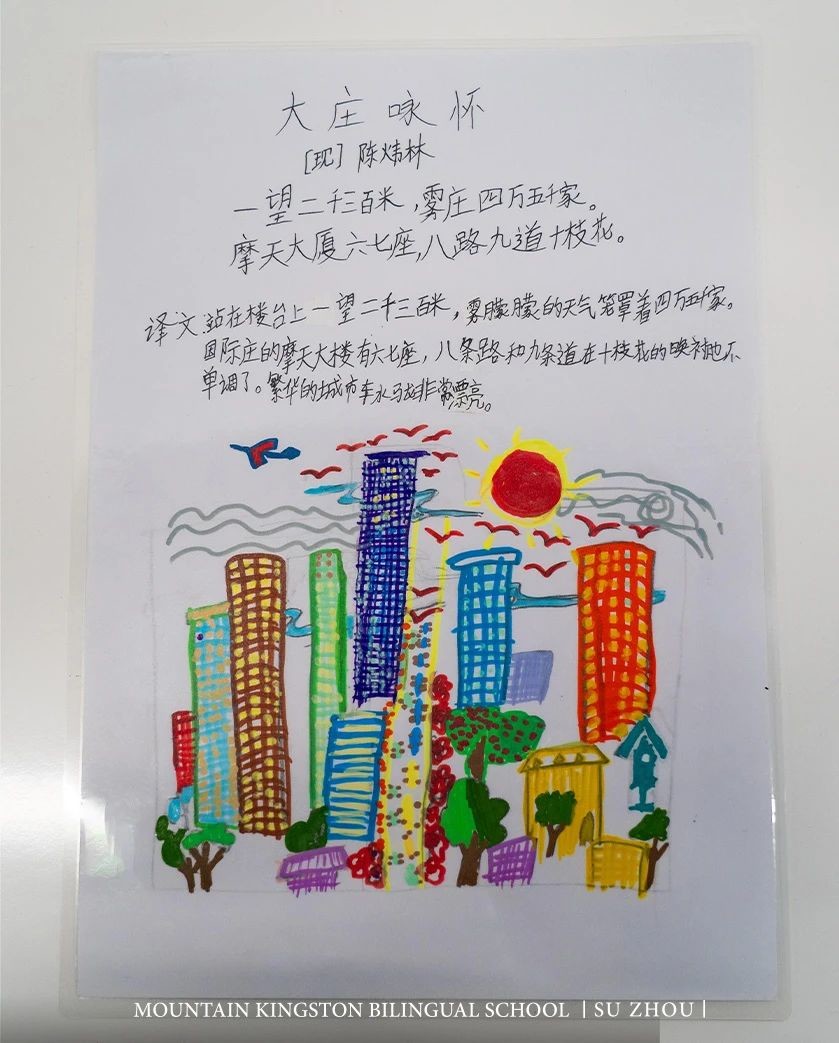 大庄咏怀
[现] 陈炜林
一望二千三百米，雾庄四万五千家。
摩天大厦六七座，八路九道十枝花。
译文：站在楼台上一望二千三百米，雾朦朦的天气笼罩着四万五千家。
国际庄的摩天大楼有六七座，八条路和九条道在十枝花的映衬也不
单调了。繁华的城市车水马龙非常漂亮。
MOUNTAIN KINGSTON BILINGUAL SCHOOL | SU ZHOU |